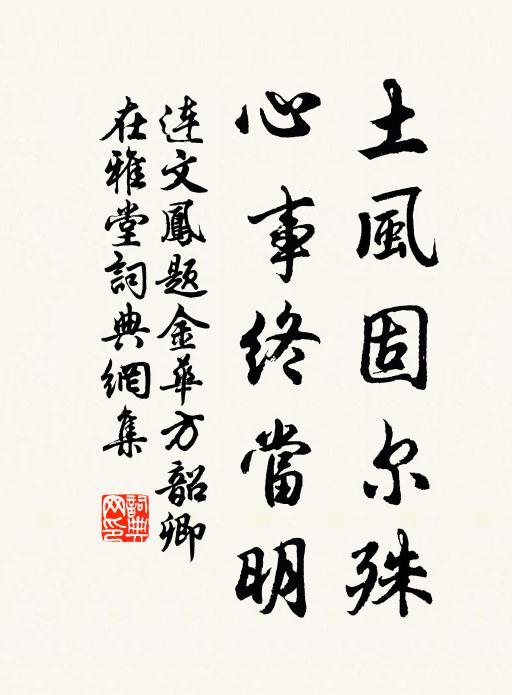 土風固尔殊
心事終當明
連文鳳题金華方韶卿
在雅堂詞典網集
詞典
网印